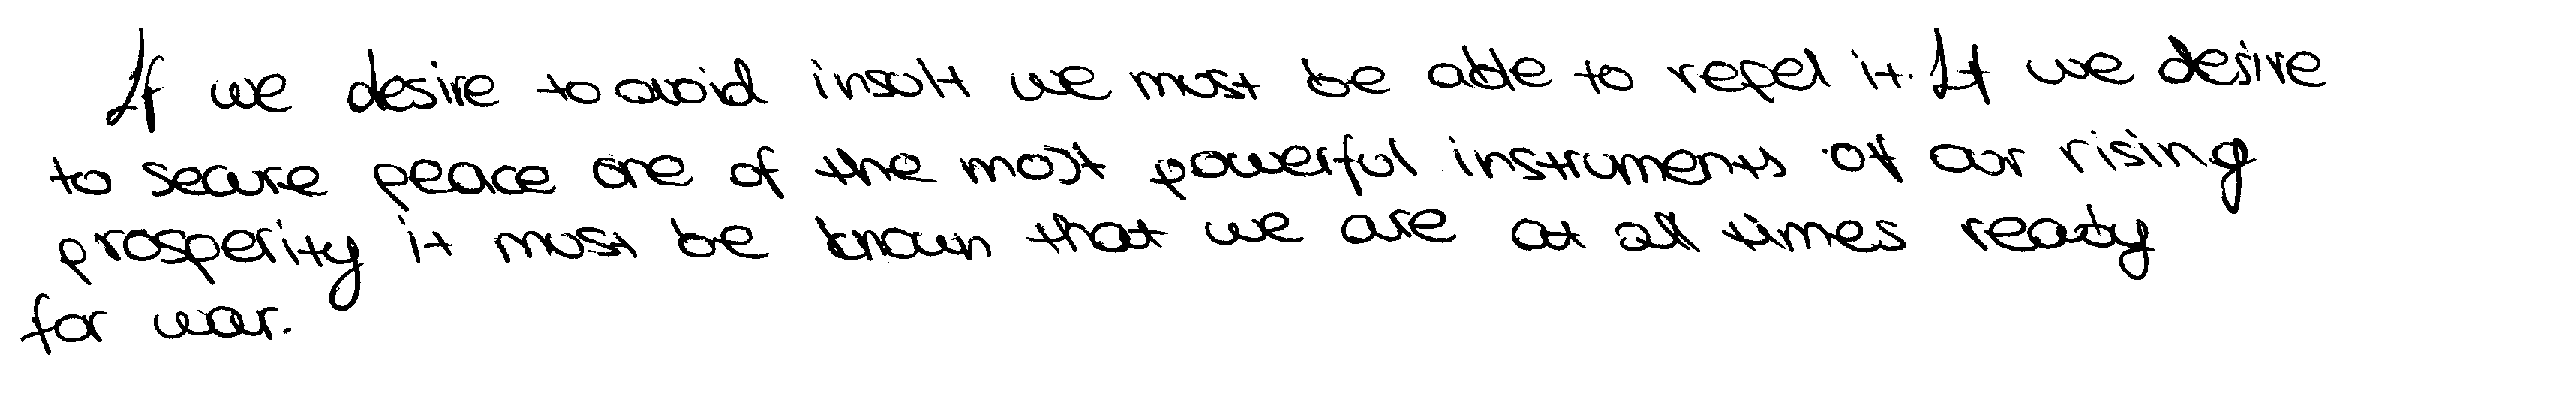 If we desire to avoid insult we must be able to repel it. If we desire
to secure peace one of the most powerful instruments of our rising
prosperity it must be known that we are at all times ready
for war.